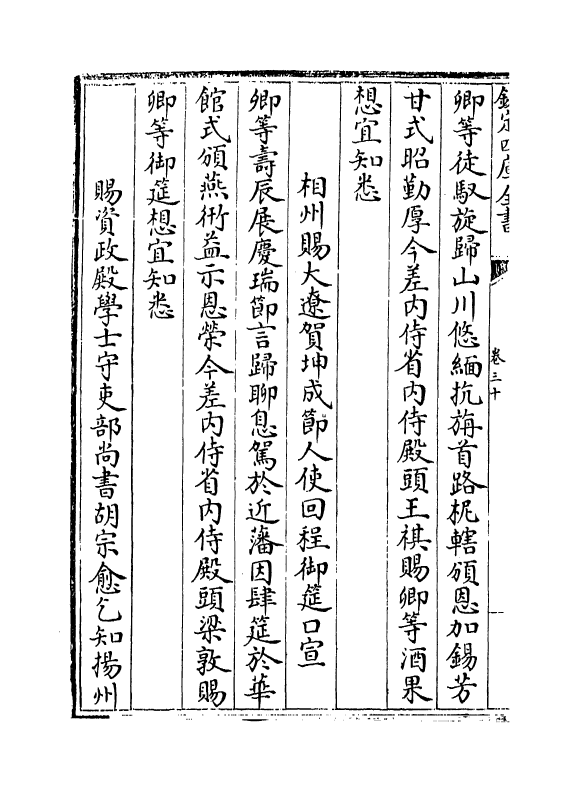 欽定四庫全書
卷三十
卿等徒馭旋歸山川悠緬抗旃首路柅轄頒恩加錫芳
甘式昭勤厚今差内侍省内侍殿頭王祺賜卿等酒果
想宜知悉
相州賜大遼賀坤成節人使回程御筵口宣
卿等壽辰展慶瑞節言歸聊息駕於近藩因肆筵於華
館式頒燕衎益示恩榮今差内侍省内侍殿頭梁敦賜
卿等御筵想宜知悉
賜資政殿學士守吏部尚書胡宗愈乞知揚州